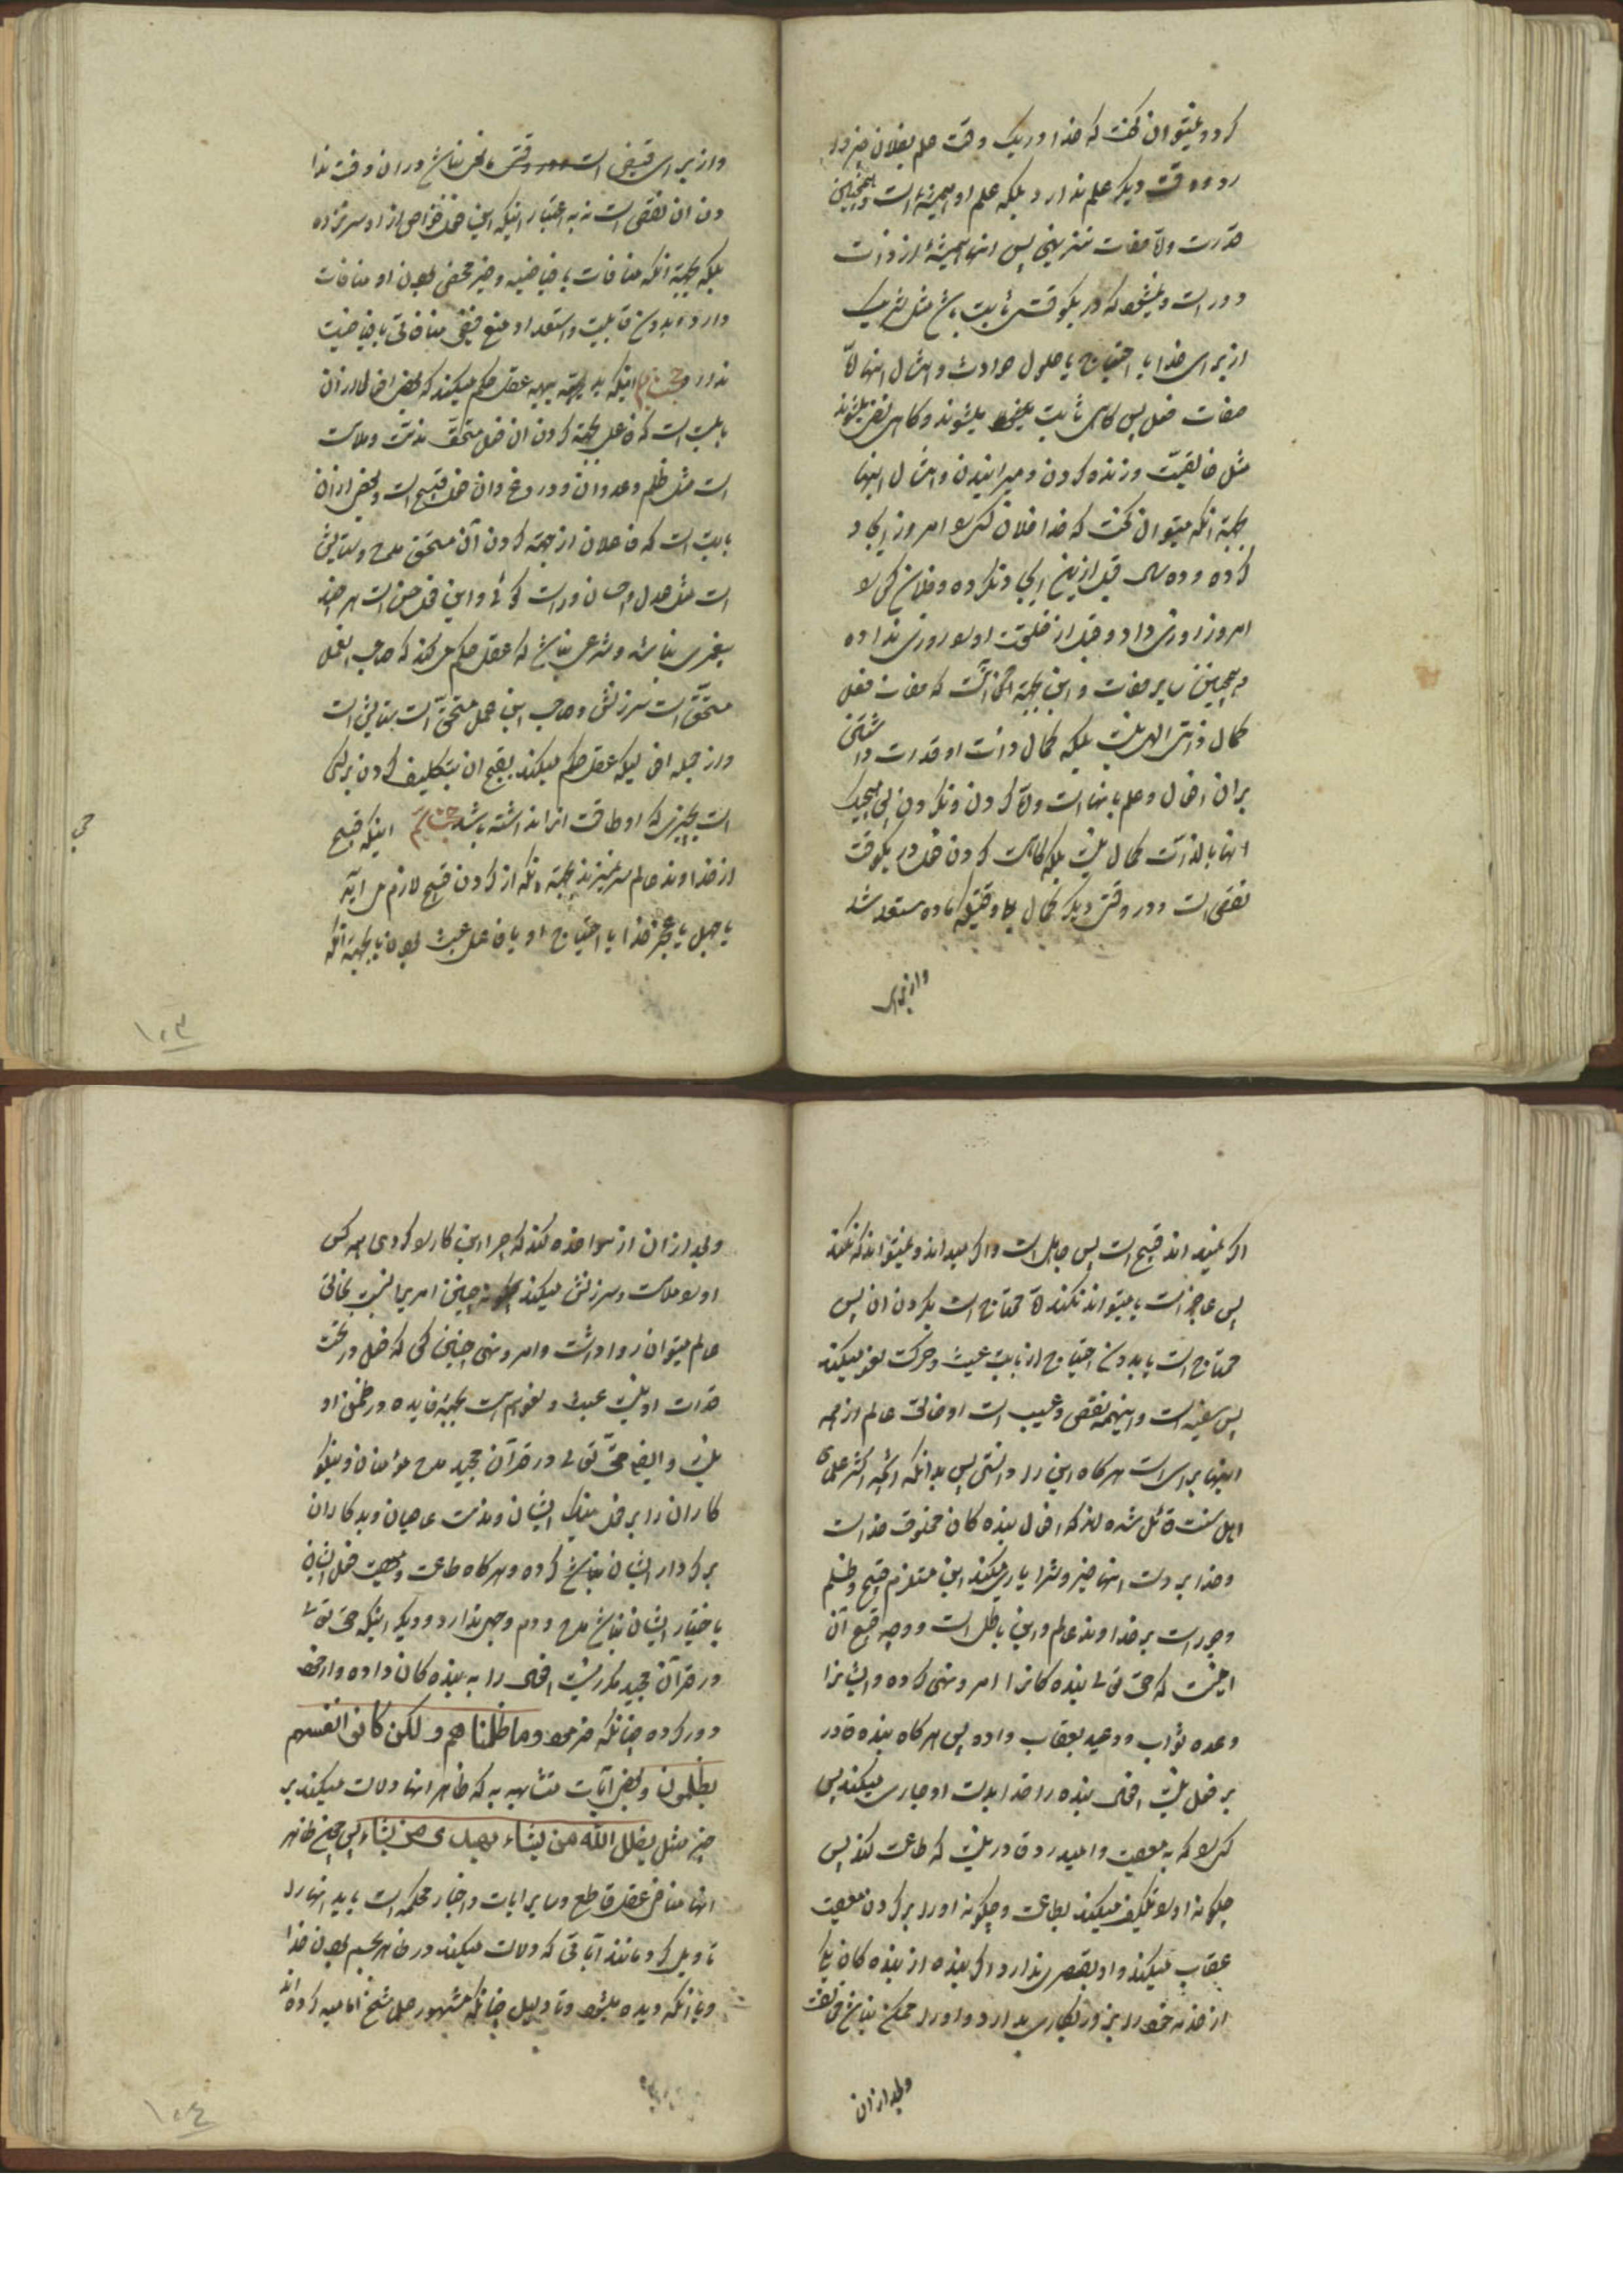 کرد و نمیتوان گفت که خدا در یک وقت علم بفلان چیز دارد
و در وقت دیگر علم ندارد بلکه علم او همیشه است و همچنین
قدرت و اما صفات تنزیهی پس انها همیشه از ذات
دور است و نمیشود که در یکوقت ثابت باشد مثل شریک
از برای خدا یا احتیاج یا حلول حوادث و امثال اینها و اما
صفات فعل پس کاهی ثابت میشوند و کاهی نفی میشوند
مثل خالقیت و زنده کردن و میرانیدن و امثال اینها
بجهة انکه میتوان گفت که خدا فلان کس را امروز ایجاد
کرده و ده سال قبل ازین ایجاد نکرده و فلان کس را
امروز روزی داد و قبل از خلقت او را روزی نداده
و همچنین سایر صفات و این بجهة آنست که صفات فعل
کمال ذاتی الهی نیست بلکه کمال ذات او قدرت داشتن
بران افعال و علم بانها است و اما کردن و نکردن پس هیچیک
انها بالذات کمال نیست بلکه کاهست کردن فعل در یکوقت
نقص است و در وقت دیگر کمال وقتیکه ماده مستعد شد
و از برای
و از برای قبیض است وقتی نباشد دران وقت ندا
دن ان نقص است نه به اعتبار اینکه این فعل خواص از او سر نزده
بلکه بجهة انکه منافات با فیاضیت و خیر محض بودن او منافات
دارد و بدون قابلیت و استعداد منع فیض منافاتی با فیاضیت
ندارد اینکه بدیهه عقل حکم میکند که بعض افعال در ان
بابت است که فاعل بجهة کردن ان فعل مستحق مذمت و ملامت
است مثل ظلم و عدوان و دروغ و ان فعل قبیح است و بعض از ان
بابت است که فاعلان از جهة کردن آن مستحق مدح و ستایش
است مثل عدل و احسان و راست کوئی و این فعل حسن است هر چند
پیغمبری نباشد و شرعی نباشد که عقل حکم میکند که صاحب آن عمل
مستحق است سرزنش و صاحب این عمل مستحق است ستایش است
و از جمله افعالیکه عقل حکم میکند بقبح ان تکلیف کردن بر کسی
است بچیزی که او طاقت انرا نداشته باشد اینکه قبیح
از خداوند عالم سر نمیزند بجهة انکه از کردن قبیح لازم می اید
یا جهل یا عجز خدا یا احتیاج او یا فاعل عبث بودن یا بجهة انکه
حی
۱۰۳
اگر نمیداند قبیح است پس جاهل است و اگر میداند و نمیتواند که نکند
پس عاجز است یا میتواند نکند اما محتاج است بکردن ان پس
محتاج است یا بدون احتیاج از بابت عبث و حرکت لغو میکند
پس سفیه است و اینهمه نقص و عیب است او خالق عالم از همه
اینها بری است هر کاه این را دانستی پس بدانکه انچه اکثر علمای
اهل سنت قائل شده اند که افعال بنده کان مخلوق خداست
و خدا بر دست انها خیر و شر را جاری میکند این مستلزم قبح و ظلم
و جور است بر خداوند عالم و این باطل است و وجه قبح آن
اینست که حق تعالی بنده کانرا امر و نهی کرده و ایشانرا
وعده ثواب و وعید بعقاب داده پس هر کاه بنده قادر
بر فعل نیست افعال بنده را خدا بدست او جاری میکند پس
کسی را که به معصیت وا میدارد و قادر نیست که طاعت کند پس
چکونه او را تکلیف میکند بطاعت و چکونه او را بر کردن معصیت
عقاب میکند و او تقصیری ندارد اگر بنده از بنده کان یک
از خدمه خود را بزور بکاری بدارد و او را ممکن نباشد مخالفت
و بعد از ان
و بعد از ان از او مواخذه کند که چرا این کار را کردی همه کس
او را ملامت و سرزنش میکند چنین امر را نسبت بخالق
عالم میتوان روا داشت و امر و نهی چنین کسی که فعل در تحت
قدرت او نیست عبث و لغو است بجهة فایده در ضمن او
نیست و ایضا حق تعالی در قرآن مجید مدح مؤمنان و نیکو
کاران را بر فعل نیک ایشان و مذمت عاصیان و بدکاران
بر کردار ایشان نباشد کرده و هر کاه طاعت و معصیت فعل ایشان
باختیار ایشان نباشد مدح و ذم وجهی ندارد و دیگر اینکه حق تعالی
در قرآن مجید مکرر نسبت افعال را به بنده کان داده و از خود
دور کرده چنانکه فرموده وما ظلمناهم ولکن کانوا انفسهم
یظلمون و بعض آیات متشابهه که ظاهر انها دلالت میکند بر
جبر مثل یضلل الله من یشاء ویهدی من یشاء پس چون ظاهر
انها مناقض عقل قاطع و سایر ایات و اخبار محکمه است باید انها را
تاویل کرد مانند آیاتی که دلالت میکند در ظاهر بجسم بودن خدا
و بانکه دیده میشود و تاویل چنانکه مشهور علمای شیخ امامیه کرده اند
۱۰٤